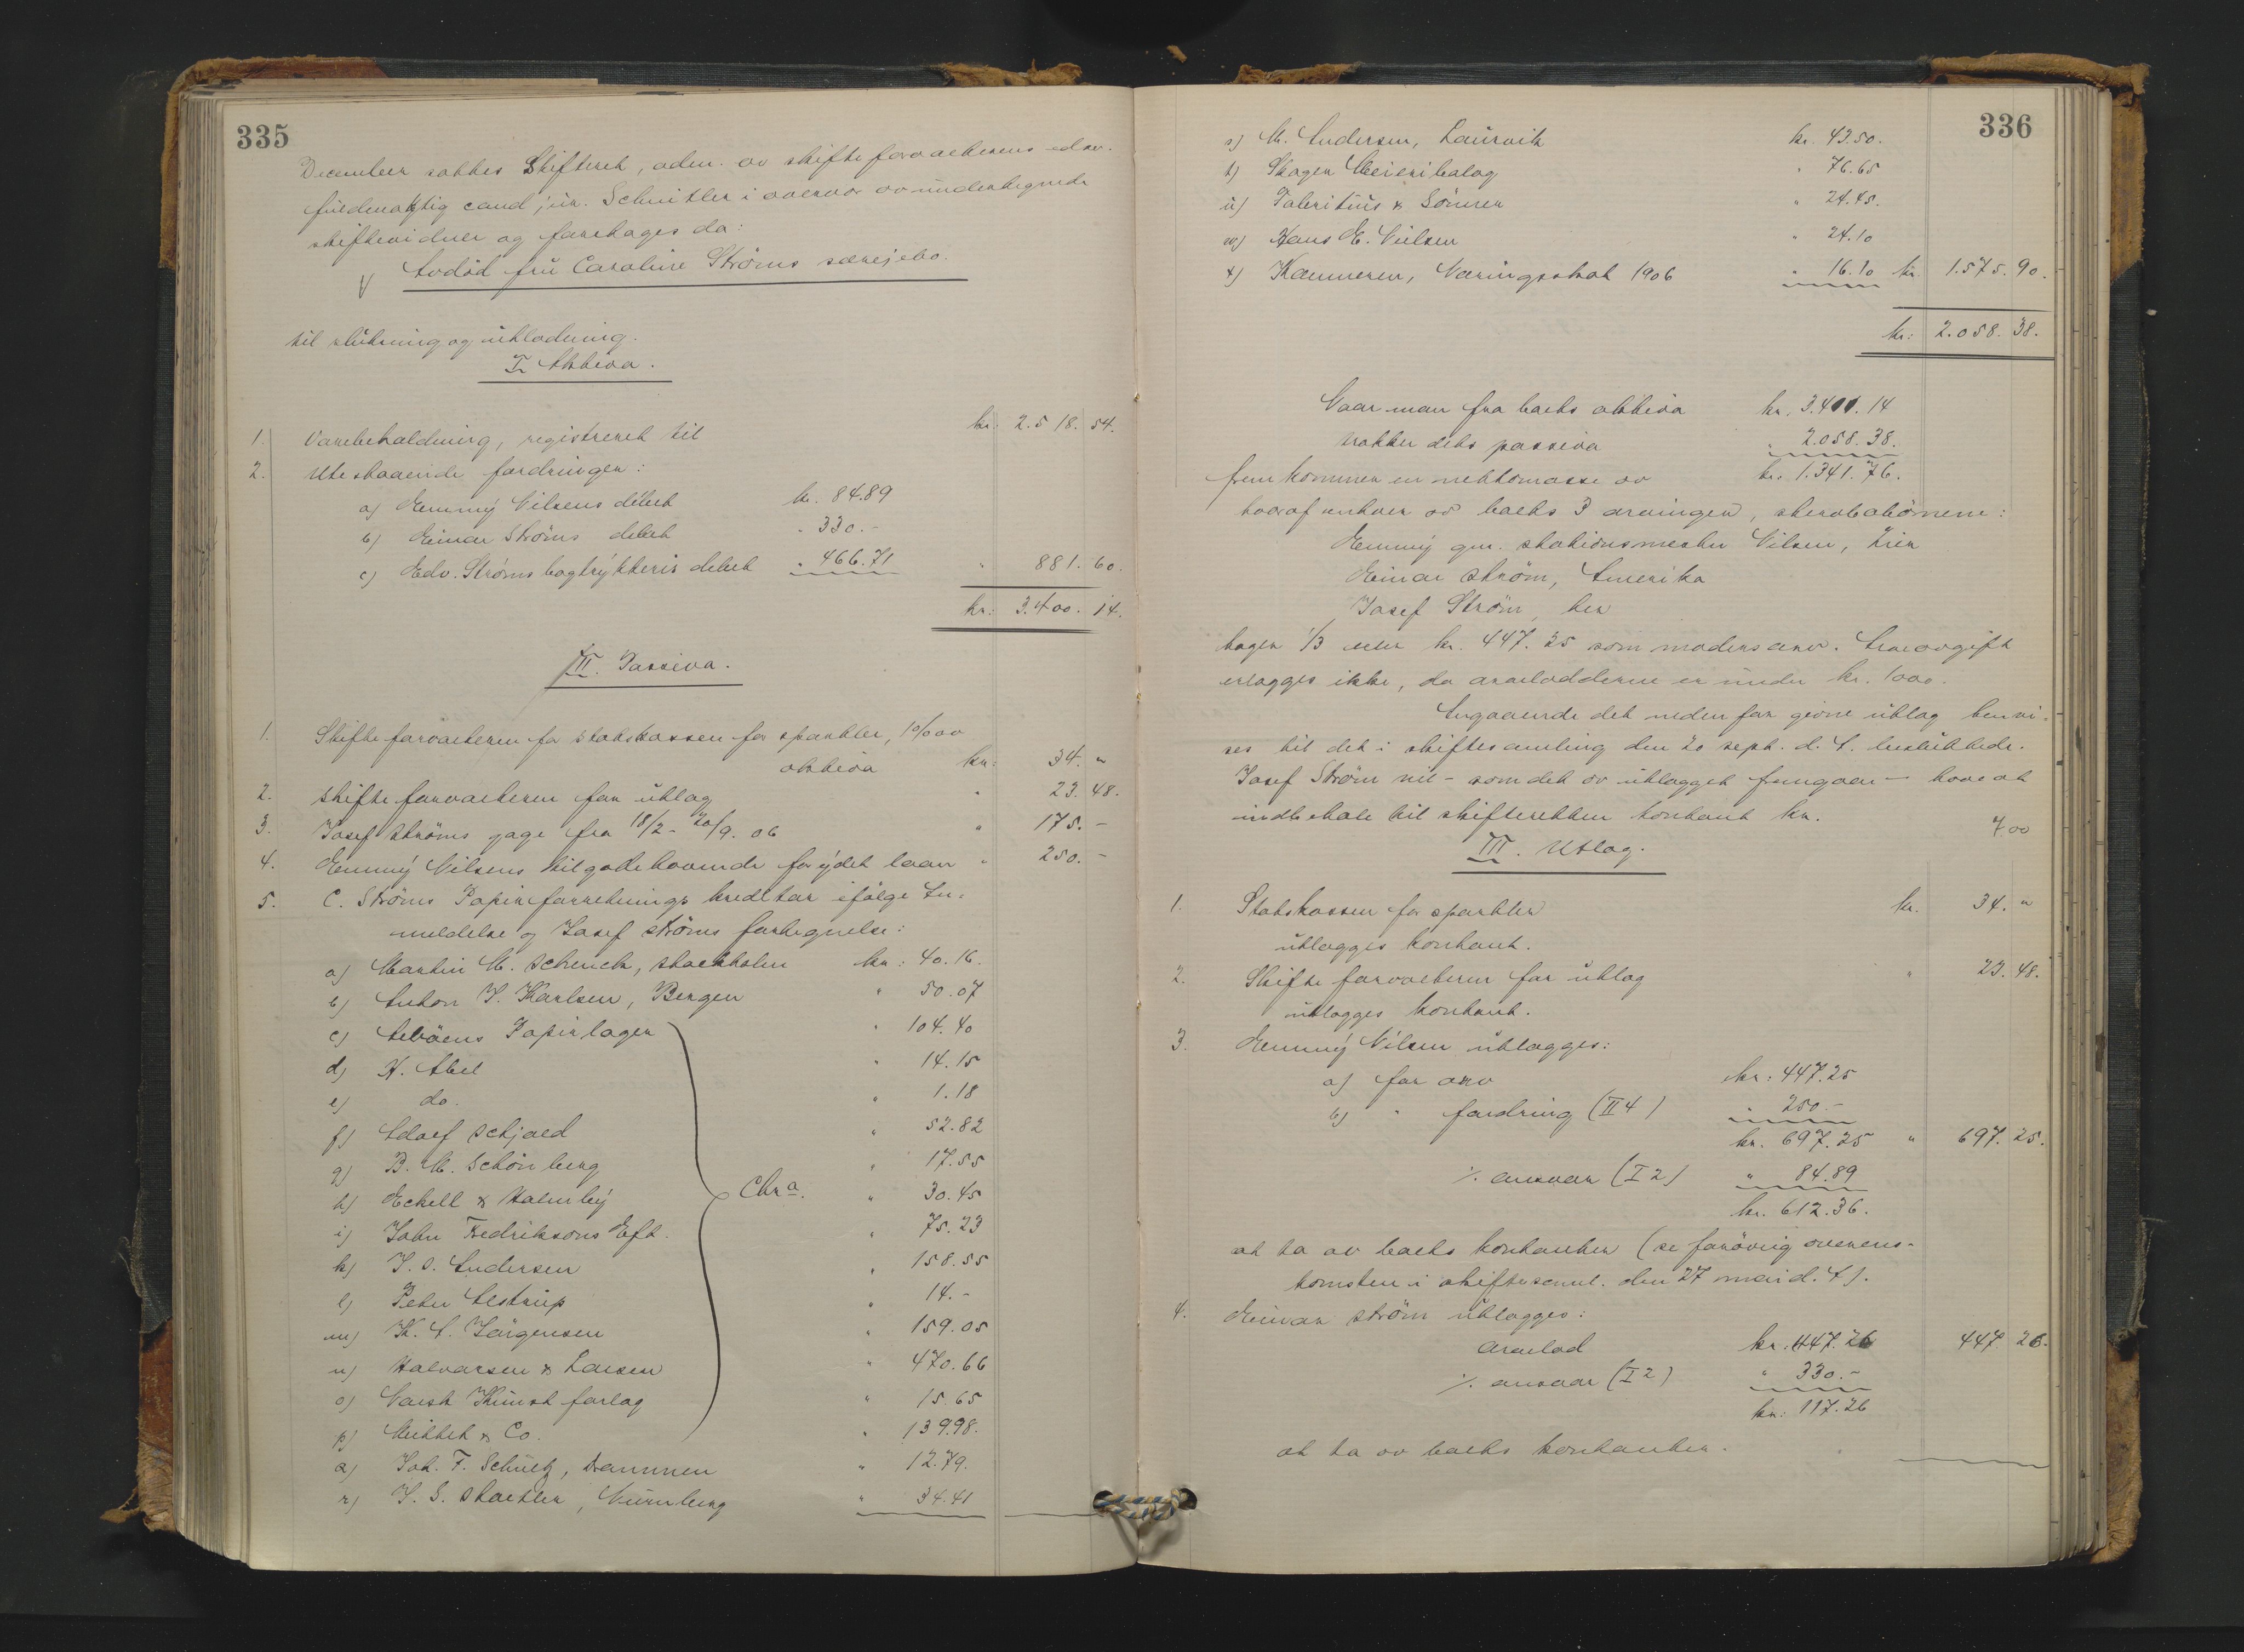 335
December sattes Skifteret, adm. av skifteforvalterens edsv.
fuldmægtig cand jur. Schnitler i overvær av undertegnede
skiftevidner og foretages da:
Avdöd frü Caroline Ströms særejebo.
til slutning og utlodning.
I Aktiva.
1. Varebeholdning, registreret til kr. 2.518.54.
2. Utestaaende fordringer:
a) Emmy Nilsens debet kr. 84.89
b) Einar Ströms debet " 330.-
c) Edv. Ströms bogtrykkeris debet " 466.71 " 881.60.
kr: 3.400.14.
II. Passiva.
1. Skifteforvalteren for statskassen for sportler, 1% av
aktiva kr: 34. "
2. Skifteforvalteren for utlag " 23.48.
3. Josef Ströms gage fra 18/2 - 20/9. 06 " 175.-
4. Emmy Nilsens tilgodehavende for ydet laan " 250.-
5. C. Ströms Papirforretnings kreditor ifölge An-
meldelse og Josef Ströms fortegnelse:
a) Martin M. Schenck, Stockholm kr: 40.16.
b) Anton J. Karlsen, Bergen " 50.07
c) Papirlager " 104.40
d) H. Abel " 14.15
e) do. " 1.18
f) Adolf Schjold " 52.82
g) B. M. Schönberg " 17.55
h) Eckell & Halmby " 30.45
Chra.
i) John Fredriksons Eft. " 75.23
k) J. O. Andersen " 158.55
l) Peter Alstrup " 14.-
m) K. A. Jörgensen " 159.05
n) Halvorsen & Larsen " 470.66
o) Norsk Kunst forlag " 15.65
p) Mittet & Co. " 139.98.
q) Joh. F. Schultz, Drammen " 12.79.
r) J. S. Staedtler, Nürnberg " 34.41
336
s) M. Andersen, Laurvik kr. 43.50.
t) Skogen Meieribolag " 76.65
u) & Sönner " 24.45.
w) Hans E. Nielsen " 24.10
x) Kæmneren, Næringsskat 1906 " 16.10 kr. 1.575.90.
kr: 2.058.38.
Naar man fra boets aktiva kr. 3.400.14
trækker dets passiva " 2.058.38.
fremkommer en nettomasse av kr. 1.341.76.
hvoraf enhver av boets 3 arvinger, skerabörnene:
Emmy gm. stationsmester Nilsen, Lier
Einar Ström, Amerika
Josef Ström, her
tager 1/3 eller kr. 447.25 som modersarv. Arveavgift
erlægges ikke, da arvelodderne er under kr. 1000.
Angaaende det nedenfor givne utlæg henvi-
ses til det i skiftesamling den 20 sept. d. A. besluttede.
Josef Ström vil - som det av utlægget fremgaar - have at
indbetale til skifteretten kontant kr. 700
III. Utlæg.
1. Statskassen for sportler kr. 34. "
utlægges kontant.
2. Skifteforvalteren for utlæg " 23.48.
utlægges kontant.
3. Emmy Nilsen utlægges:
a) for arv kr: 447.25
b) " fordring (II 4) " 250.-
kr. 697.25 " 697.25.
÷ ansvar (I 2) " 84.89
kr. 612.36.
at ta av boets kontanter (se forövrig overens-
komsten i skiftesaml. den 27 mai d. A).
4. Einar Ström utlægges:
Arvelod kr. 447.26 447.26.
÷ ansvar (I 2) " 330.-
kr: 117.26
at ta av boets kontanter.